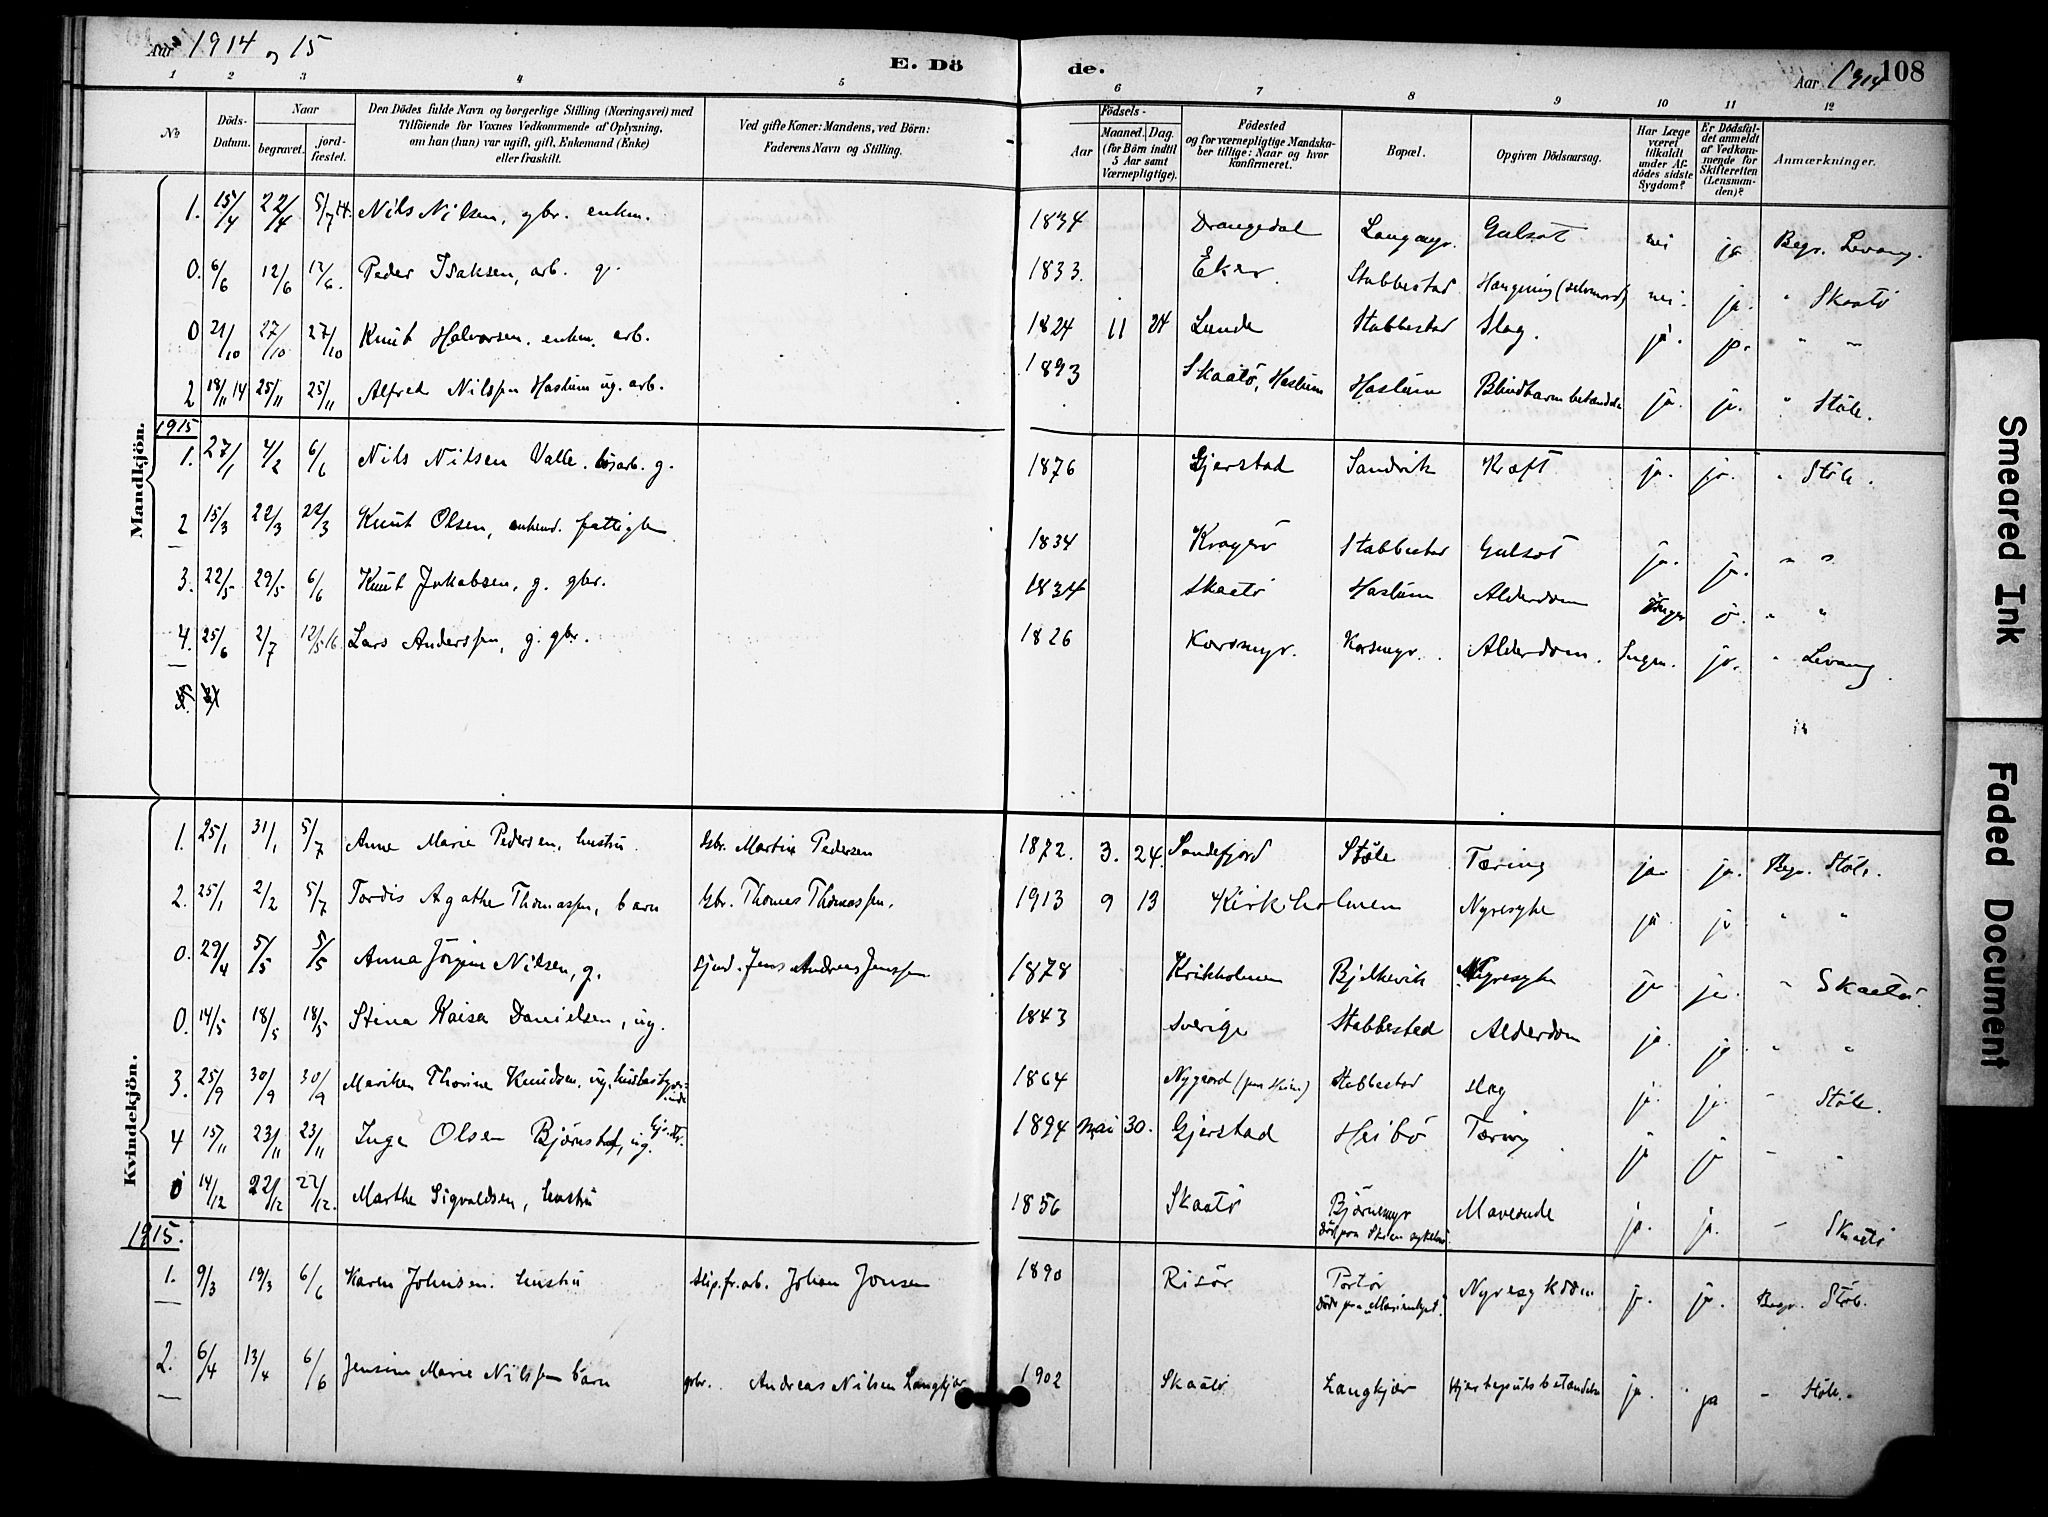 Aar 1914 og 15
E. Dö
de.
Aar 1914
108
1 2 3 4 5 6 7 8 9 10 11 12
No
Döds-Datum.
Naar
begravet.
jord-fæstet.
Den Dödes fulde Navn og borgerlige Stilling (Næringsvei) med
Tilföiende for Voxnes Vedkommende af Oplysning,
om han (hun) var ugift, gift, Enkemand (Enke)
eller fraskilt.
Ved gifte Koner: Mandens, ved Börn:
Faderens Navn og Stilling.
Födsels-
Aar
Maaned. Dag.
(for Börn indtil
5 Aar samt
Værnepligtige).
Födested
og for værnepligtige Mandska-
ber tillige: Naar og hvor
konfirmeret.
Bopæl.
Opgiven Dödsaarsag.
Har Læge
været
tilkaldt
under Af-
dödes sidste
Sygdom?
Er Dödsfal-
det anmeldt
af Vedkom-
mende for
Skifteretten
(Lensman-
den)?
Anmærkninger.
Mandkjön.
1. 15/4 22/4 5/7 14. Nils Nilsen, gbr. enkm. 1834 Drangedal Langmyr. Gulsot nei ja Begr. Levang.
0. 6/6 12/6 12/6. Peder Isaksen, arb. g. 1833. Eker Stabbestad Hængning (selvmord) nei. ja. " Skaatö
0 21/10 27/10 27/10 Knut Halvorsen. enkm. arb. 1824 11 24 Lunde Stabbestad Slag. ja. ja. " "
2 18/11 14 25/11 25/11 Alfred Nilssen Haslum ug. arb. 1893 Skaatö, Haslum Haslum Blindtarmbetændelse ja. ja. " Stöle.
1915
1. 27/1 4/2 6/6 Nils Nilsen Valle. g. 1876 Gjerstad Sandvik Kræft. ja. ja. " Stöle.
2 15/3 22/3 22/3 Knut Olsen, fattigl. 1834 Kragerö Stabbestad Gulsot ja. ja. " "
3. 22/5 29/5 6/6 Knut Jakobsen, g. gbr. 1834 Skaatö Haslum Alderdom Ingen " "
4. 25/6 2/7 12/5 16. Lars Anderssen, g. gbr. 1826 Korsmyr. Korsmyr. Alderdom. Ingen. ja. " Levang
Kvindekjön.
1. 25/1 31/1 5/7 Anne Marie Pedersen, hustru. Gbr. Martin Pedersen 1872. 3. 24. Sandefjord Stöle Tæring ja. ja. Begr. Stöle.
2. 25/1 2/2 5/7 Tordis Agathe Thomassen, barn Gbr. Thomas Thomassen. 1913 9 13 Kirkholmen Nyresyke ja ja " "
0. 29/4 5/5 5/5 Anna Jörgine Nilsen, g. Sjmd. Jens Andreas Jenssen 1878 Krikholmen Bjelkevik Nyresyke ja ja. " Skaatö.
0. 14/5 18/5 18/5 Stina Kaisa Danielsen, ug. 1843 Sverige Stabbestad Alderdom ja. ja " "
3. 25/9 30/9 30/9 Mariken Thorine Knudsen. ug. husbestyrerinde 1864 Nygaard Stabbestad slag ja. ja. " Stöle.
4 15/11 23/11 23/11 Inga Olsen Bjørnstad, ug. 1894 mai 30. Gjerstad Heibö Tæring ja ja " "
0 14/12 22/12 22/12. Marthe Sigvaldsen, hustru 1856 Skaatö Björnemyr Mavesude ja. ja. " Skaatö
död paa Skien sykehus.
1915.
1. 9/3 19/3 6/6 Karen Johnsen. hustru slip.fr.arb. Johan Jonsen 1890 Risör Portör Nyresykdom. ja. ja. Begr. Stöle.
döde paa
2. 6/4 13/4 6/6 Jensine Marie Nilssen barn gbr. Andreas Nilsen Langkjær 1902 Skaatö Langkjær Hjerteposebetændelse ja. ja " Stöle.
Smeared Ink
Faded Document